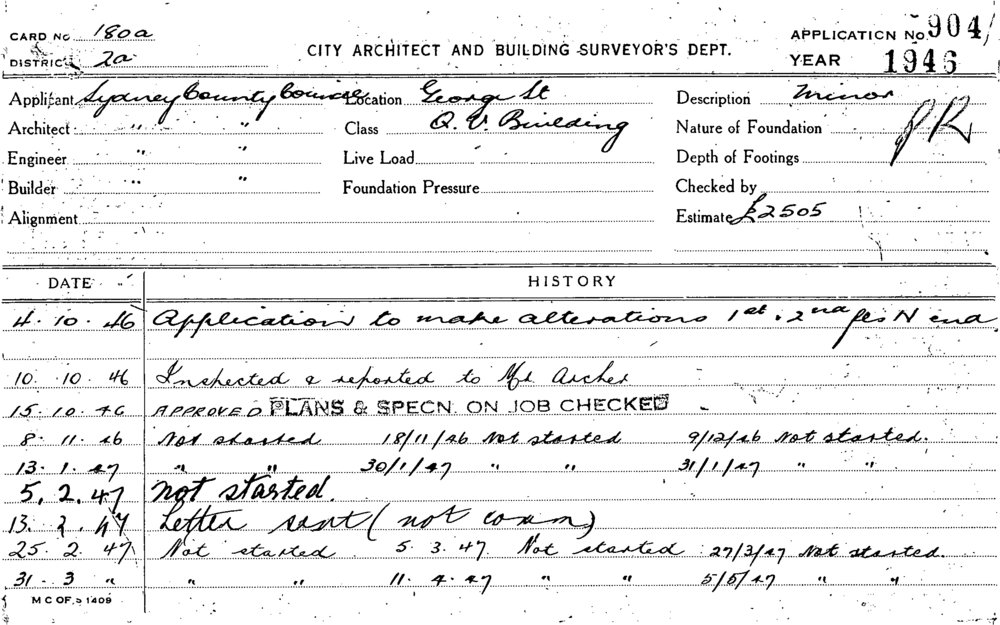 CARD No 180a
DISTRICT 2a
CITY ARCHITECT AND BUILDING SURVEYOR'S DEPT.
APPLICATION No. 904/
YEAR 1946
Applicant Sydney County Council Location George St Description Minor
Architect " " Class Q.V. Building Nature of Foundation
Engineer " " Live Load Depth of Footings
Builder " " Foundation Pressure Checked by
Alignment Estimate £2505
DATE HISTORY
4. 10. 46 Application to make alterations 1st. 2nd fls N end
10. 10. 46 Inspected & reported to Mr Archer
15. 10. 46 APPROVED PLANS & SPECN. ON JOB CHECKED
8. 11. 46 Not started 18/11/46 Not started 9/12/46 Not started.
13. 1. 47 " " 30/1/47 " " 31/1/47 " "
5. 2. 47 Not started.
13. 2. 47 Letter sent (not comm)
25. 2. 47 Not started 5. 3. 47 Not started 27/3/47 Not started.
31. 3 " " " 11. 4. 47 " " 5/5/47 " "
M C OF S 1409